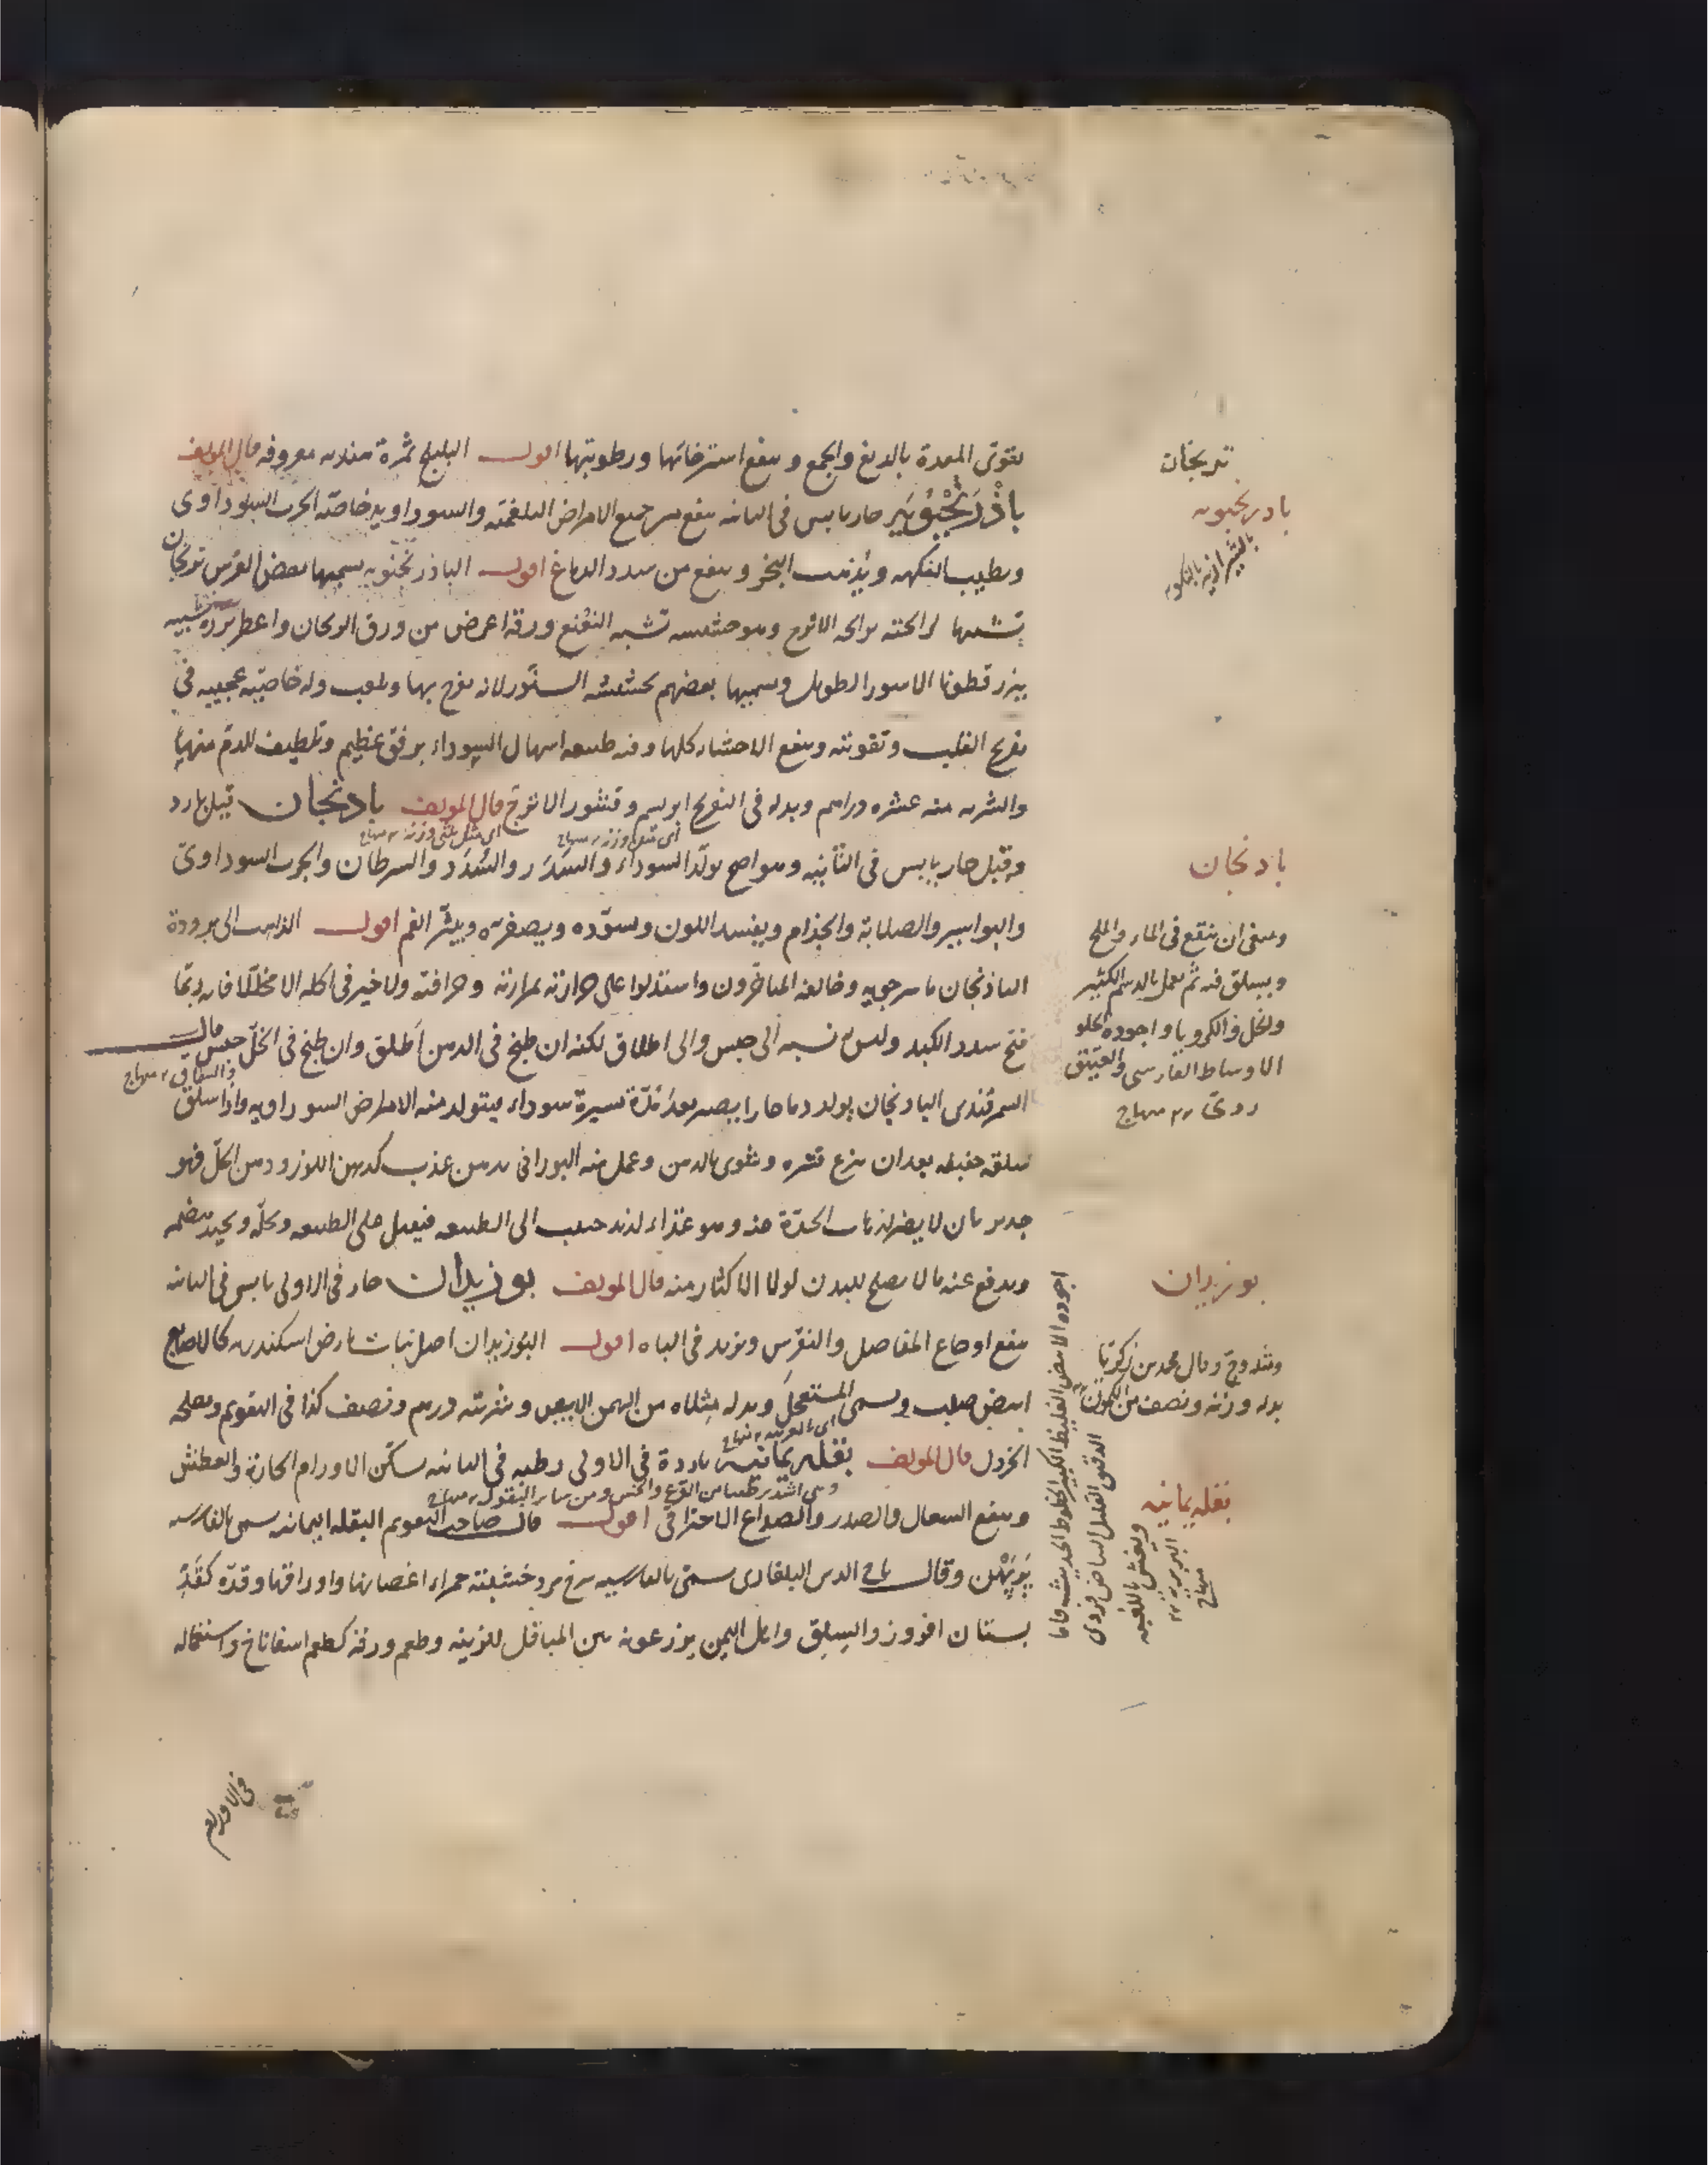 يقوى المعدة بالدبغ والجمع وينفع استرخائها ورطوبتها اقول البليلج ثمرة هنديه معروفه قال المولف
باذرنجبويه حار يابس فى الثانيه ينفع من جميع الامراض البلغميّة والسوداويه خاصّة الجرب السوداوى
ويطيب النكهه ويذهب البخر وينفع من سدد الدماغ اقول الباذرنجبويه يسميها بعض الفرس ترنجان
تشبيها لرائحته برائحة الاترج وهو حشيشه تشبه النعنع ورقه اعرض من ورق الريحان واعطر بزره شبيه
ببزر قطونا الاسود الطويل ويسميها بعضهم بحشيشة السنّور لانه يفرح بها ويلعب وله خاصّيّه عجيبه فى
تفريح القلب وتقويته وينفع الاحشاء كلها وفيه طبيعه اسهال السوداء برفق عظيم وتلطيف للدم منهيا
والشربه منه عشره دراهم وبدله فى التفريح ابريسم وقشور الاترج قال المولف بادنجان قيل بارد
اى مثل وزنه منهاج اى مثل ثلثى وزنه منهاج
وقيل حار يابس فى الثانيه وهو اصح يولّد السوداء والسَدَر والسُدَد والسرطان والجرب السوداوىّ
والبواسير والصلابة والجذام ويفسد اللون ويسوّده ويصفره ويبثّر الفم اقول الذاهب الى برودة
الباذنجان ماسرجويه وخالفه المتاخّرون واستدلوا على حرارته بمرارته وحرافته ولا خير فى اكله الا مخلّلا فانه ربّما
فتح سدد الكبد وليس له نسبه الى حبس والى اطلاق لكنه ان طبخ فى الدهن اَطلق وان طبخ فى الخلّ حبس قال
والسماق منهاج
السمرقندى البادنجان يولد دما حارا يصير بعد مدّة يسيرة سوداء فيتولد منه الامراض السوداويه واذا سلق
سلقه خفيفه بعد ان ينزع قشره وشوى بالدهن وعمل منه البورانى بدهن عذب كدهن اللوز ودهن الخلّ فهو
جدير بان لا يضر لذهاب الحدّة عنه وهو غذاء لذيذ حبيب الى الطبيعه فيقبل على الطبيعه وتحلّه ويجيد هضمه
ويدفع عنه ما لا يصلح للبدن لولا الاكثار منه قال المولف بوزيدان حار فى الاولى يابس فى الثانيه
ينفع اوجاع المفاصل والنقرس ويزيد فى الباه اقول البوزيدان اصل نبات بارض اسكندريه كالاصابع
ابيض صلب ويسمى المستعجل وبدله مثلاه من البهمن الابيض وشربته درهم ونصف كذا فى التقويم ومصلحه
اى العربيه منهاج
الخردل قال المولف بقله يمانيه باردة فى الاولى رطبه فى الثانيه يسكّن الاورام الحارّة والعطش
وهى اشد ترطيبا من القرع والخس ومن ساير البقول منهاج
وينفع السعال والصدر والصداع الاحتراقى اقول قال صاحب التقويم البقله اليمانيه يسمى بالفارسيه
وقال تاج الدين البلغارى يسمّى بالفارسيه سرخ مرد خشيشته حمراء اغصانها واوراقها وقدّه كقدّ
بستان افروز والسلق واهل اليمن يزرعونه بين المباقل للزينه وطعم ورقه كطعم اسفاناخ واستعماله
فى الاورام
ترنجان
بادرنجبويه
بادنجان
وينبغى ان ينقع فى الماء والملح
ويسلق فيه ثم يعمل بالدسم الكثير
والخل والكرويا واجوده الحلو
الاوساط الفارسى والعتيق
ردىّ منهاج
بوزيدان
وقال محمد بن زكريّا
بدله وزنه ونصف من
اجوده الابيض الغليظ الكثير الخطوط الحديث فاما
الدقيق القليل البياض فردى
ويغش باللعبه
البربريه
منهاج
بقله يمانيه